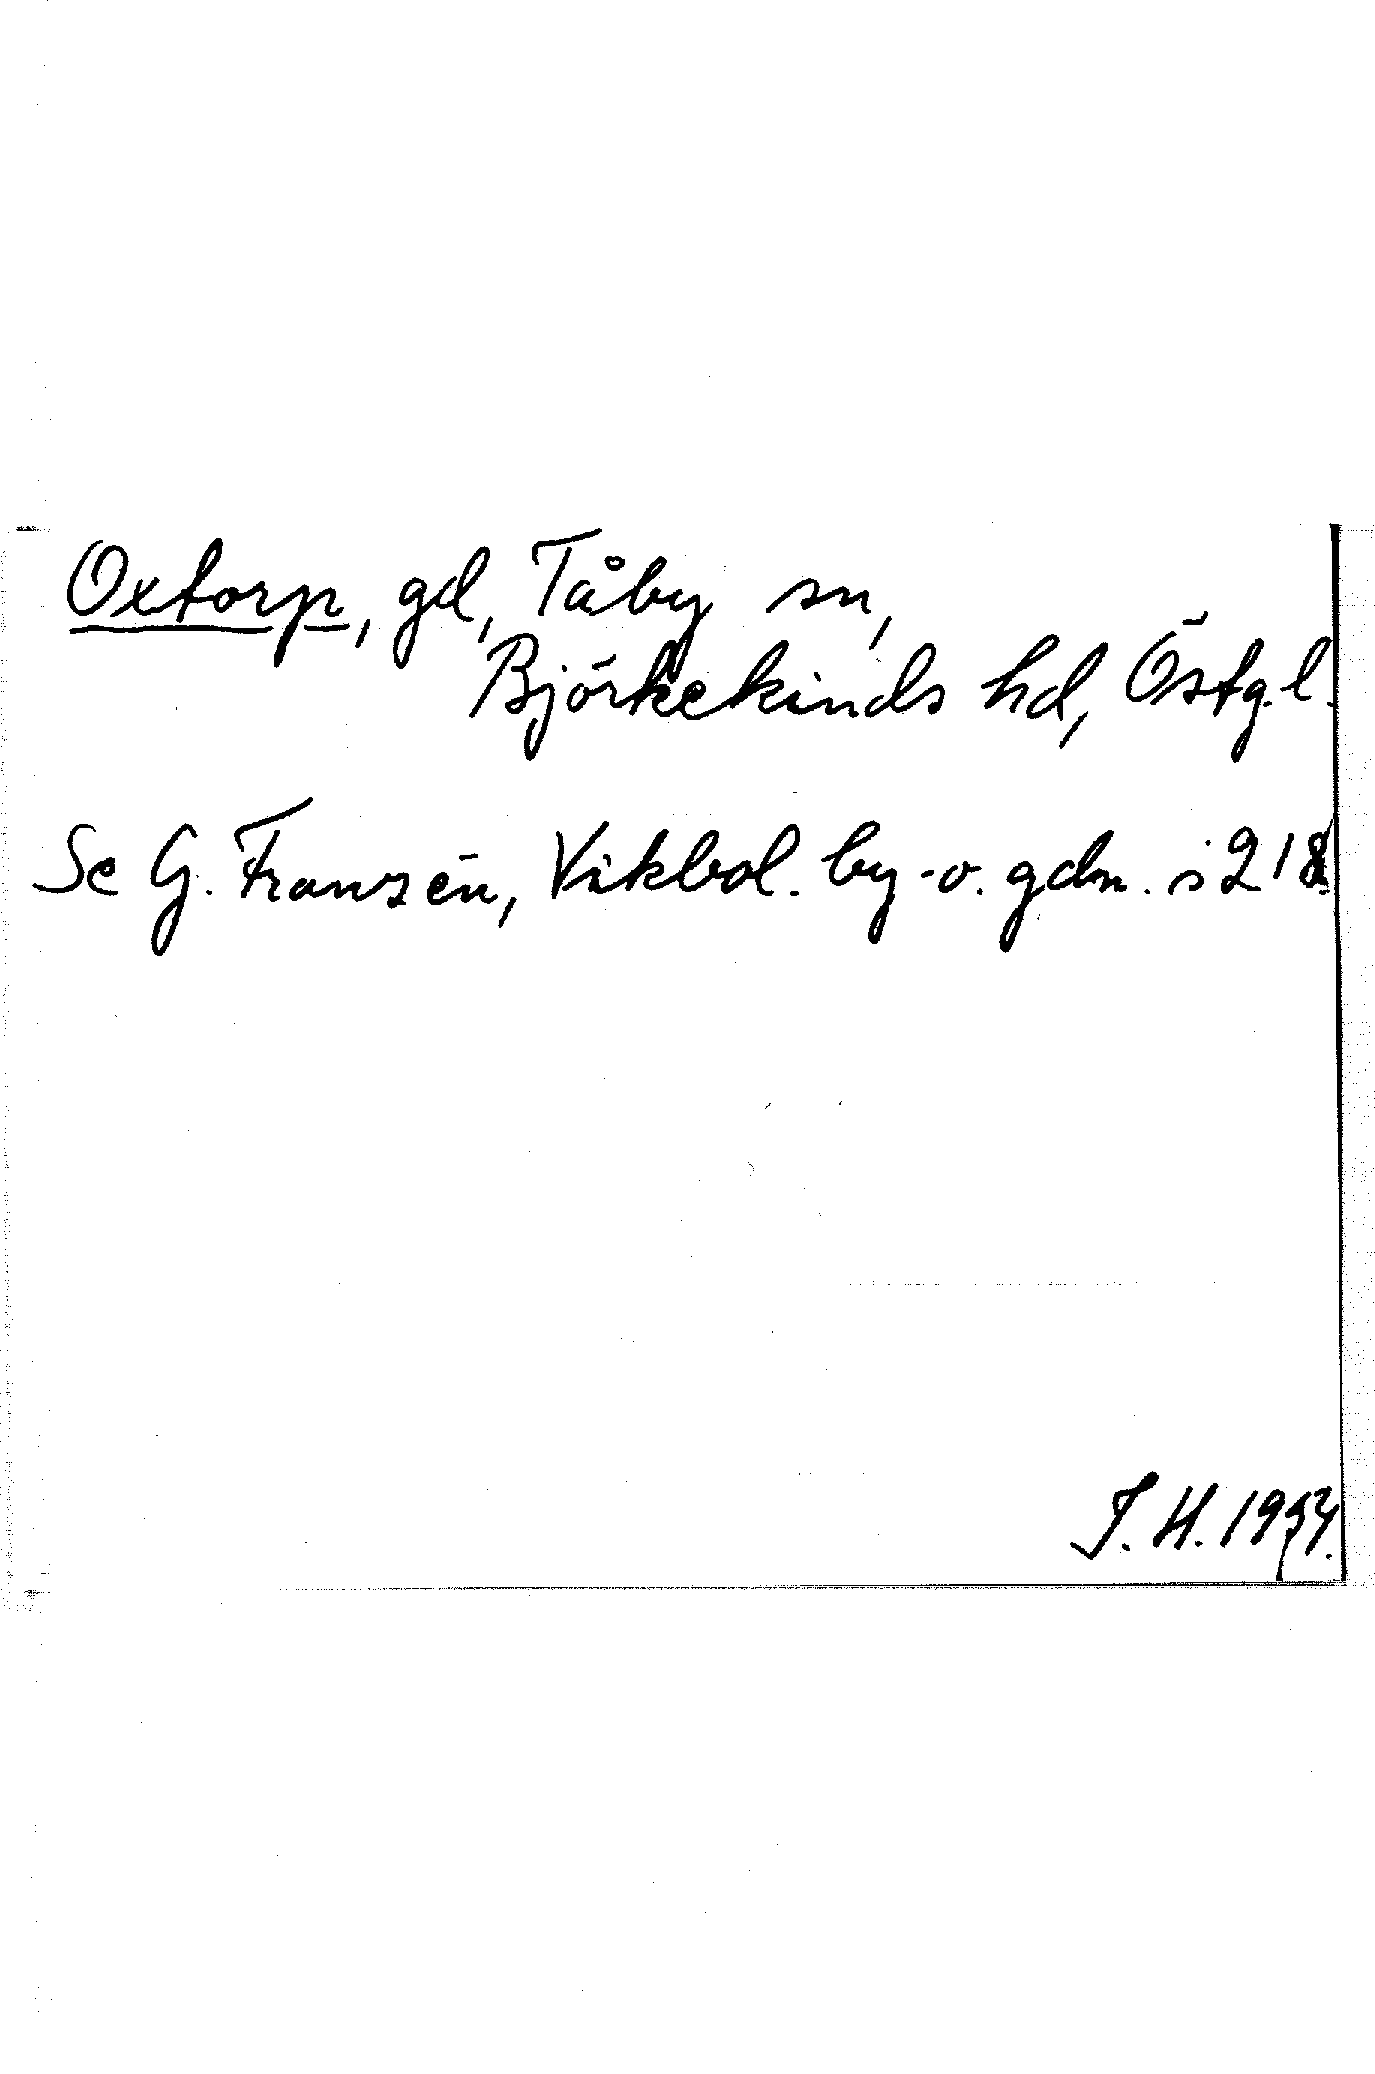 Oxtorp, gd, Tåby sn,
Björkekinds hd, Östg.l.
Se G. Franzén, Vikbol. by-o. gdn. s 218
J. H. 1954.